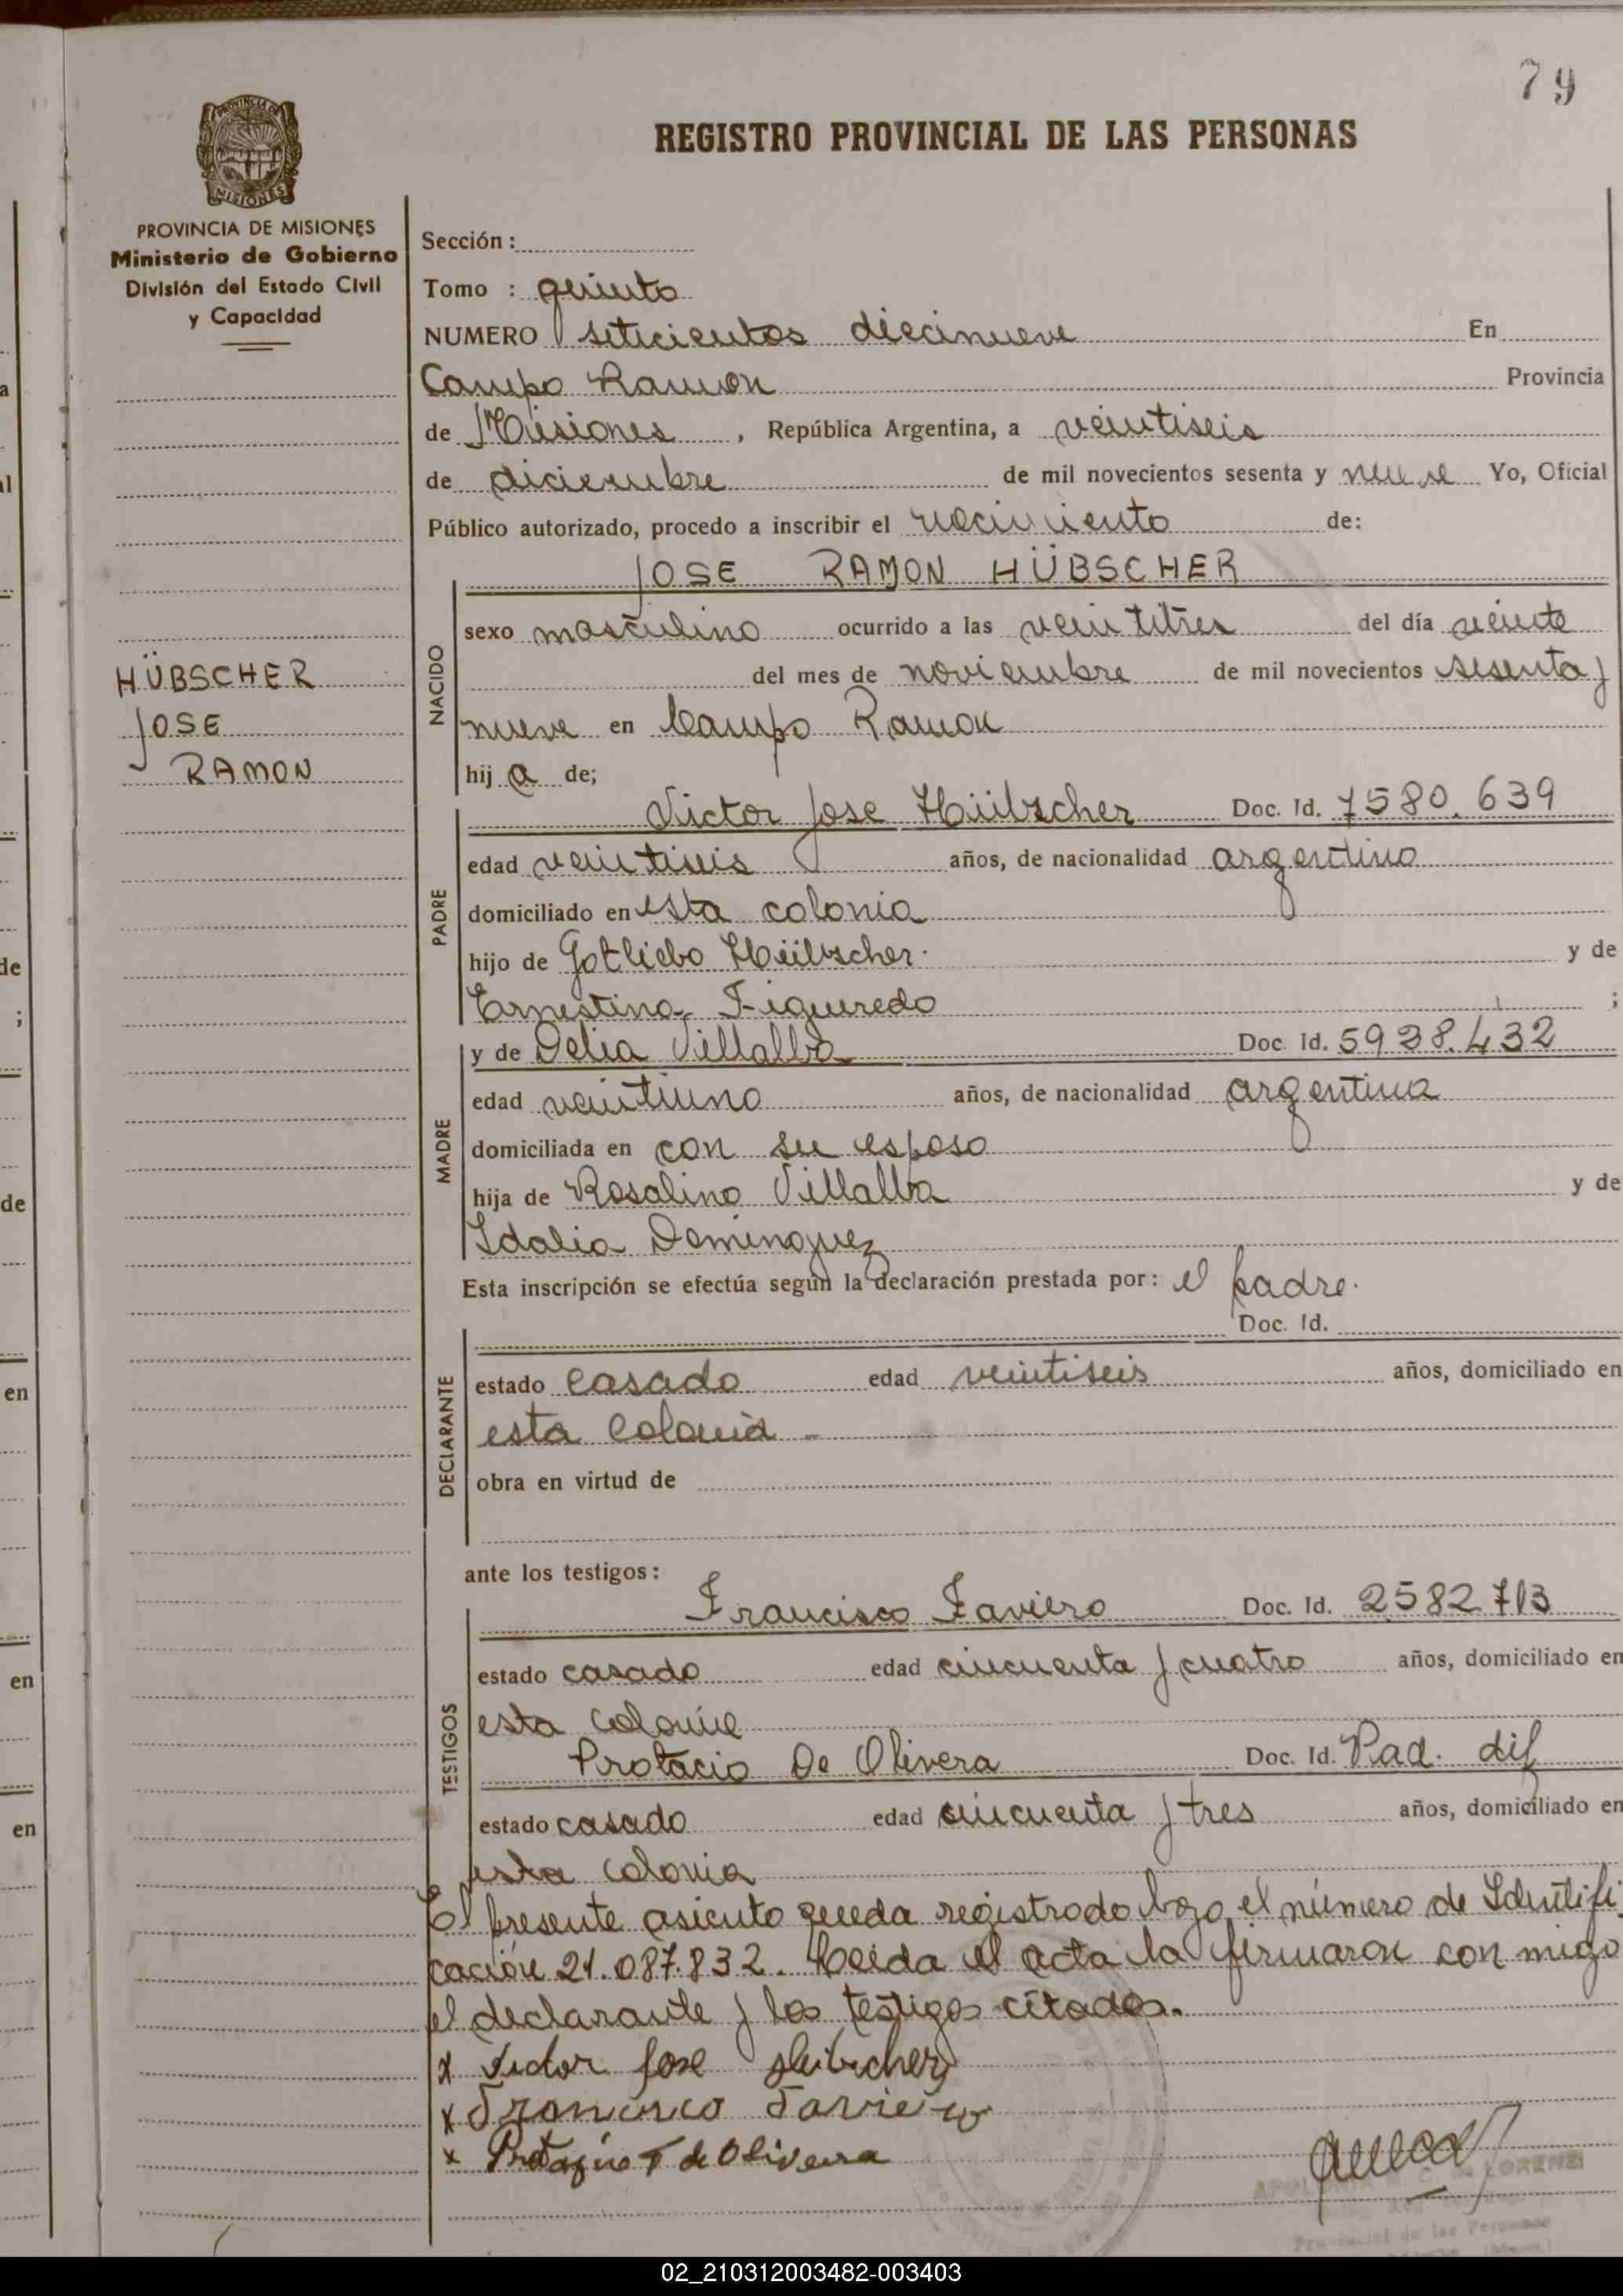 79
REGISTRO PROVINCIAL DE LAS PERSONAS
PROVINCIA DE MISIONES
MISIONES
PROVINCIA DE MISIONES
Ministerio de Gobierno
División del Estado Civil
y Capacidad
HÜBSCHER
JOSE
RAMON
Sección :
Tomo : quinto
NUMERO seticientos diecinueve En
Campo Ramon Provincia
de Misiones , República Argentina, a veintiseis
de diciembre de mil novecientos sesenta y nueve Yo, Oficial
Público autorizado, procedo a inscribir el nacimiento de:
JOSE RAMON HÜBSCHER
NACIDO
sexo masculino ocurrido a las veintitres del día veinte
del mes de noviembre de mil novecientos sesenta y
nueve en Campo Ramon
hij a de;
PADRE
Victor Jose Hübscher Doc. Id. 7580.639
edad veintiseis años, de nacionalidad argentino
domiciliado en esta colonia
hijo de Gotliebo Hübscher. y de
Ernestina Figueredo ;
MADRE
y de Delia Villalba Doc. Id. 5938.432
edad veintiuno años, de nacionalidad argentina
domiciliada en con su esposo
hija de Rosalino Villalba y de
Idalia Dominguez
Esta inscripción se efectúa según la declaración prestada por: el padre.
Doc. Id.
DECLARANTE
estado casado edad veintiseis años, domiciliado en
esta colonia -
obra en virtud de
ante los testigos:
TESTIGOS
Francisco Faviero Doc. Id. 2582713
estado casado edad cincuenta y cuatro años, domiciliado en
esta colonia
Protacio De Olivera Doc. Id. Pad. dif
estado casado edad cincuenta y tres años, domiciliado en
esta colonia
El presente asiento queda registrado bajo el número de Identifi-
cación 21.087.832. Leida el acta la firmaron con migo
el declarante y los testigos citados.
x Victor Jose Hübscher
x Francisco Faviero
x Protazio T de Oliveira
LORENZI
Provincial de las Personas
a
al
de
;
de
en
en
en
02_210312003482-003403